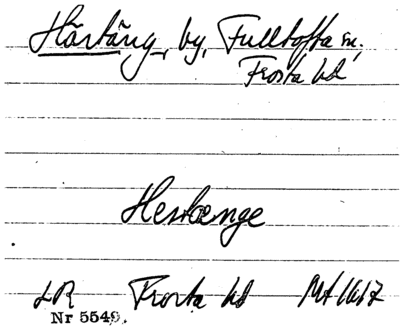 Hästäng, by, Fulltofta sn,
Frosta hd
Hestænge
LR Frosta hd Mt 1617
Nr 5549.